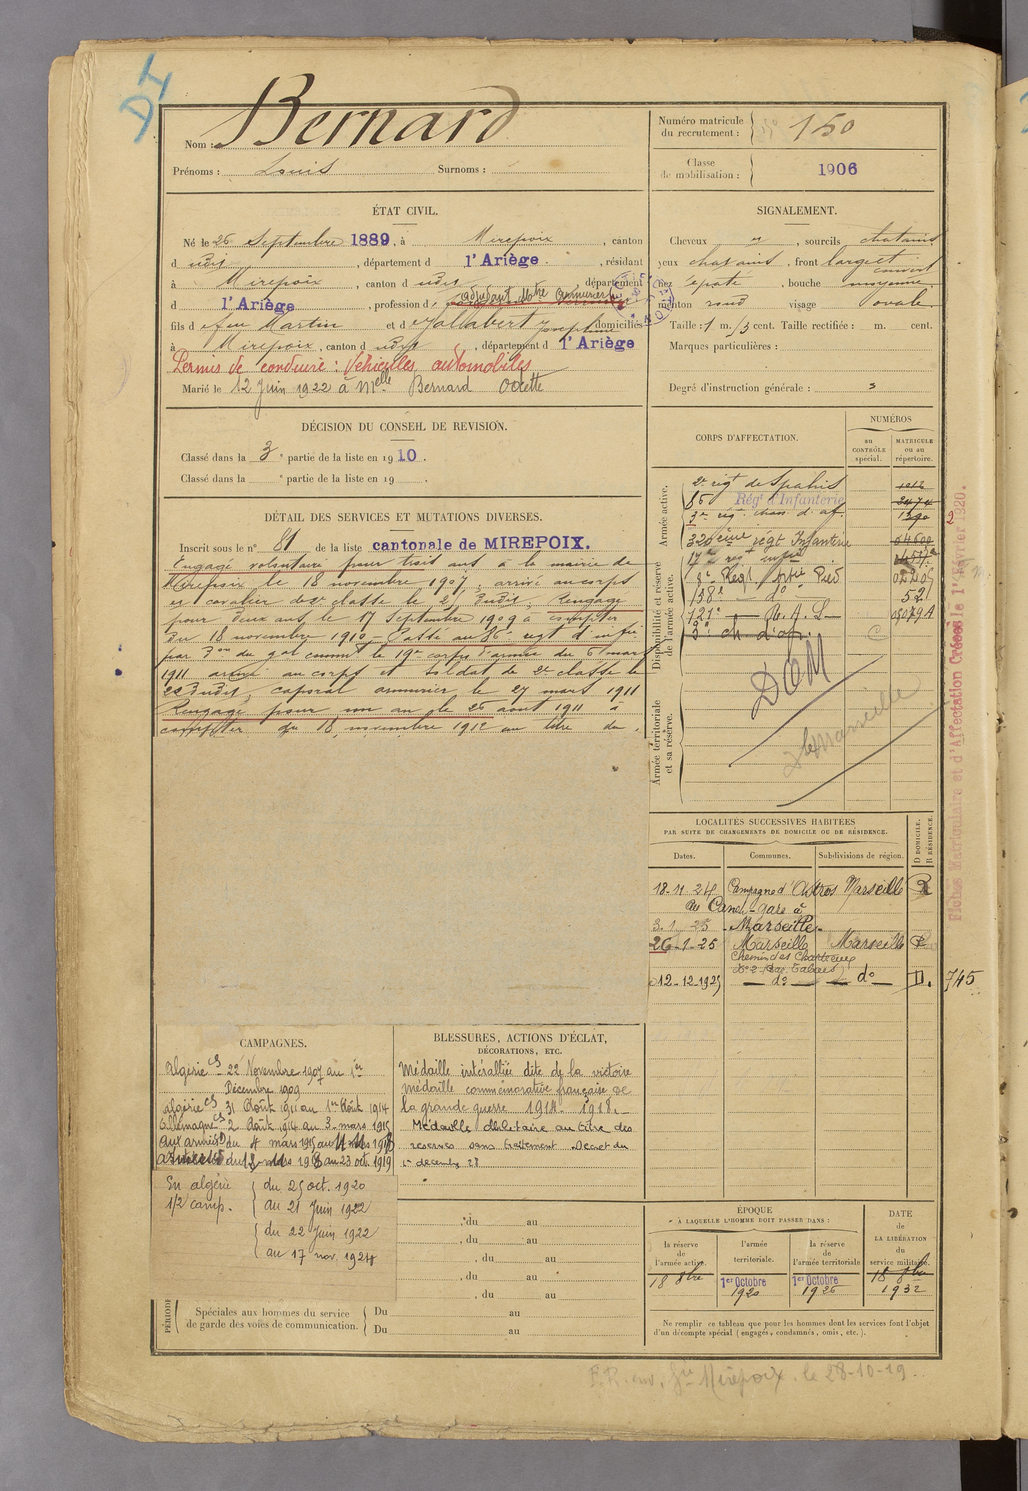 DI
Nom : Bernard
Prénoms : Louis Surnoms :
Numéro matricule du recrutement : 150
Classe de mobilisation : 1906
ÉTAT CIVIL.
Né le 26 Septembre 1889, à Mirepoix, canton
d udis, département d l'Ariège, résidant
à Mirepoix, canton d udis département
d l'Ariège, profession d
fils d feu Martin et d Jallabert Josephine domiciliés
à Mirepoix, canton d udit, département d l'Ariège
Permis de conduire : Véhicules automobiles
Marié le 12 Juin 1922 à Melle Bernard Odette
SIGNALEMENT.
Cheveux , sourcils chatains
yeux chatains, front large
couvert
nez épaté, bouche moyenne
menton rond visage ovale
Taille : 1 m. cent. Taille rectifiée : m. cent.
Marques particulières :
Degré d'instruction générale : 3
DÉCISION DU CONSEIL DE REVISION.
Classé dans la 3e partie de la liste en 1910.
Classé dans la e partie de la liste en 19 .
DÉTAIL DES SERVICES ET MUTATIONS DIVERSES.
Inscrit sous le n° 81 de la liste cantonale de MIREPOIX.
Engagé volontaire pour trois ans à la mairie de
Mirepoix le 18 novembre 1907, arrivé au corps
et cavalier de 2e classe le 21 dudit, Rengagé
pour deux ans le 17 Septembre 1909 à compter
du 18 novembre 1910 - Passé au 86e régt d'infie
par Don du gal commt le 19e corps d'armée du 6 mars
1911 arrivé au corps et soldat de 2e classe le
22 dudit, caporal armurier le 27 mars 1911
Rengagé pour un an le 26 aout 1911 à
compter du 18 novembre 1912 au titre du
CORPS D'AFFECTATION.
NUMÉROS
au CONTRÔLE spécial.
MATRICULE ou au répertoire.
Armée active.
Disponibilité et réserve de l'armée active.
Armée territoriale et sa réserve.
2e régt de Spahis
86 Régt d'Infanterie 2474
3e rég. chas. d. af. 1390
320eme régt Infantrie
17e regt infie
8e Regt Infie
38e - do - 52
121e R. A. L.
3e ch d'af.
DOM
Marseille
Fiches Matriculaire et d'Affectation Créées le 1er Février 1920.
LOCALITÉS SUCCESSIVES HABITÉES
PAR SUITE DE CHANGEMENTS DE DOMICILE OU DE RÉSIDENCE.
Dates. Communes. Subdivisions de région. D DOMICILE. R RÉSIDENCE.
18-11-24 Campagne d' Marseille R
au Canet-gare à
3.1.25 - Marseille.
26-1-25 Marseille Marseille R
Chemin des Chartreux
12-12-1925 - do - - do - D. 745
CAMPAGNES.
Algérie 22 Novembre 1907 au 1er
Décembre 1909
Algérie 31 Août 1911 au 1er Août 1914
Allemagne 2 Août 1914 au 3 mars 1915
aux armées du 4 mars 1915 au
au 23 oct. 1919
En algérie du 25 oct. 1920
1/2 camp. au 21 Juin 1922
du 22 Juin 1922
au 17 nov. 1924
BLESSURES, ACTIONS D'ÉCLAT,
DÉCORATIONS, ETC.
Médaille interalliée dite de la victoire
Médaille commémorative française de
la grande guerre 1914-1918.
Médaille Militaire au titre des
reserves sans traitement Decret du
1er decembre 28
, du au
, du au
, du au
, du au
, du au
PÉRIODE
Spéciales aux hommes du service
de garde des voies de communication.
Du au
Du au
ÉPOQUE
À LAQUELLE L'HOMME DOIT PASSER DANS :
la réserve de l'armée active.
l'armée territoriale.
la réserve de l'armée territoriale
DATE de LA LIBÉRATION du service militaire.
18 8bre
1er Octobre 1920
1er Octobre 1926
18 8bre 1932
Ne remplir ce tableau que pour les hommes dont les services font l'objet
d'un décompte spécial (engagés, condamnés, omis, etc.).
Mirepoix. le 28-10-19